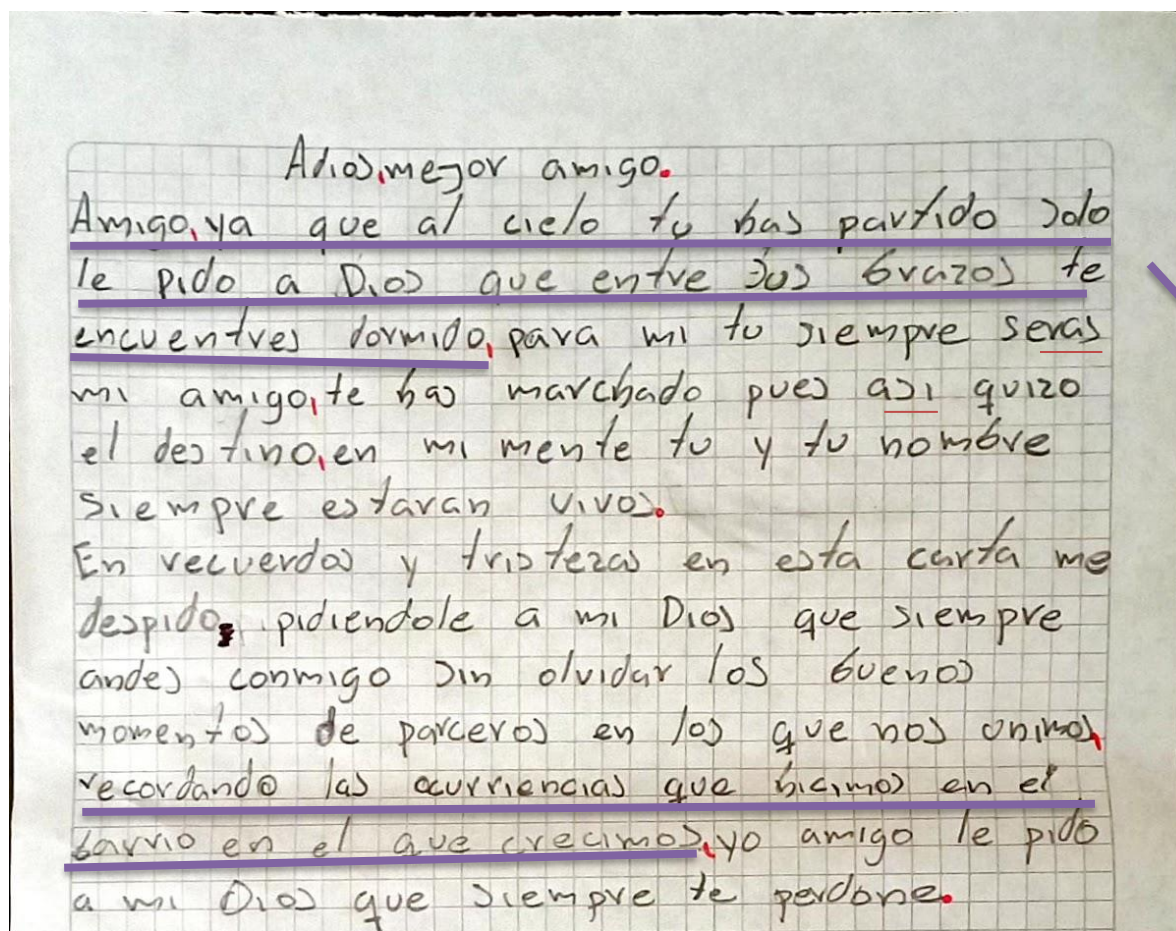 Adios, mejor amigo.
Amigo, ya que al cielo tu has partido solo
le pido a Dios que entre sus brazos te
encuentres dormido, para mi tu siempre seras
mi amigo, te has marchado pues asi quizo
el destino, en mi mente tu y tu nombre
siempre estaran vivos.
En recuerdos y tristezas en esta carta me
despido, pidiendole a mi Dios que siempre
andes conmigo sin olvidar los buenos
momentos de parceros en los que nos unimos,
recordando las ocurriencias que hicimos en el
barrio en el que crecimos, yo amigo le pido
a mi Dios que siempre te perdone.